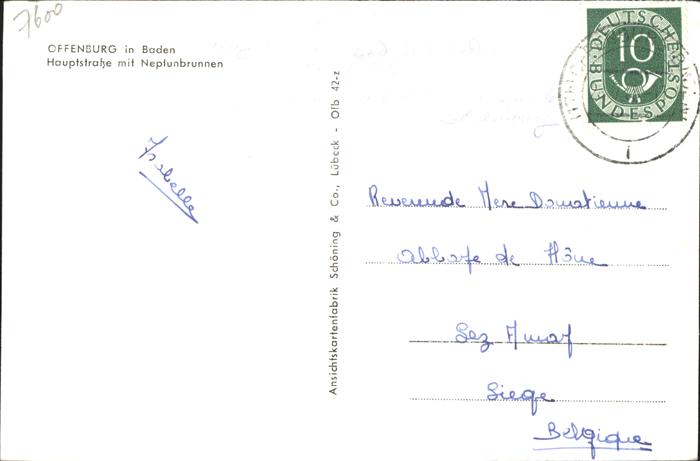 7600
OFFENBURG in Baden
Hauptstraße mit Neptunbrunnen
Isabelle
Ansichtskartenfabrik Schöning & Co., Lübeck - Ofb 42-z
DEUTSCHE BUNDESPOST
10
Reverende Mere Domatienne
Abbaye de
Lez
Liege
Belgique